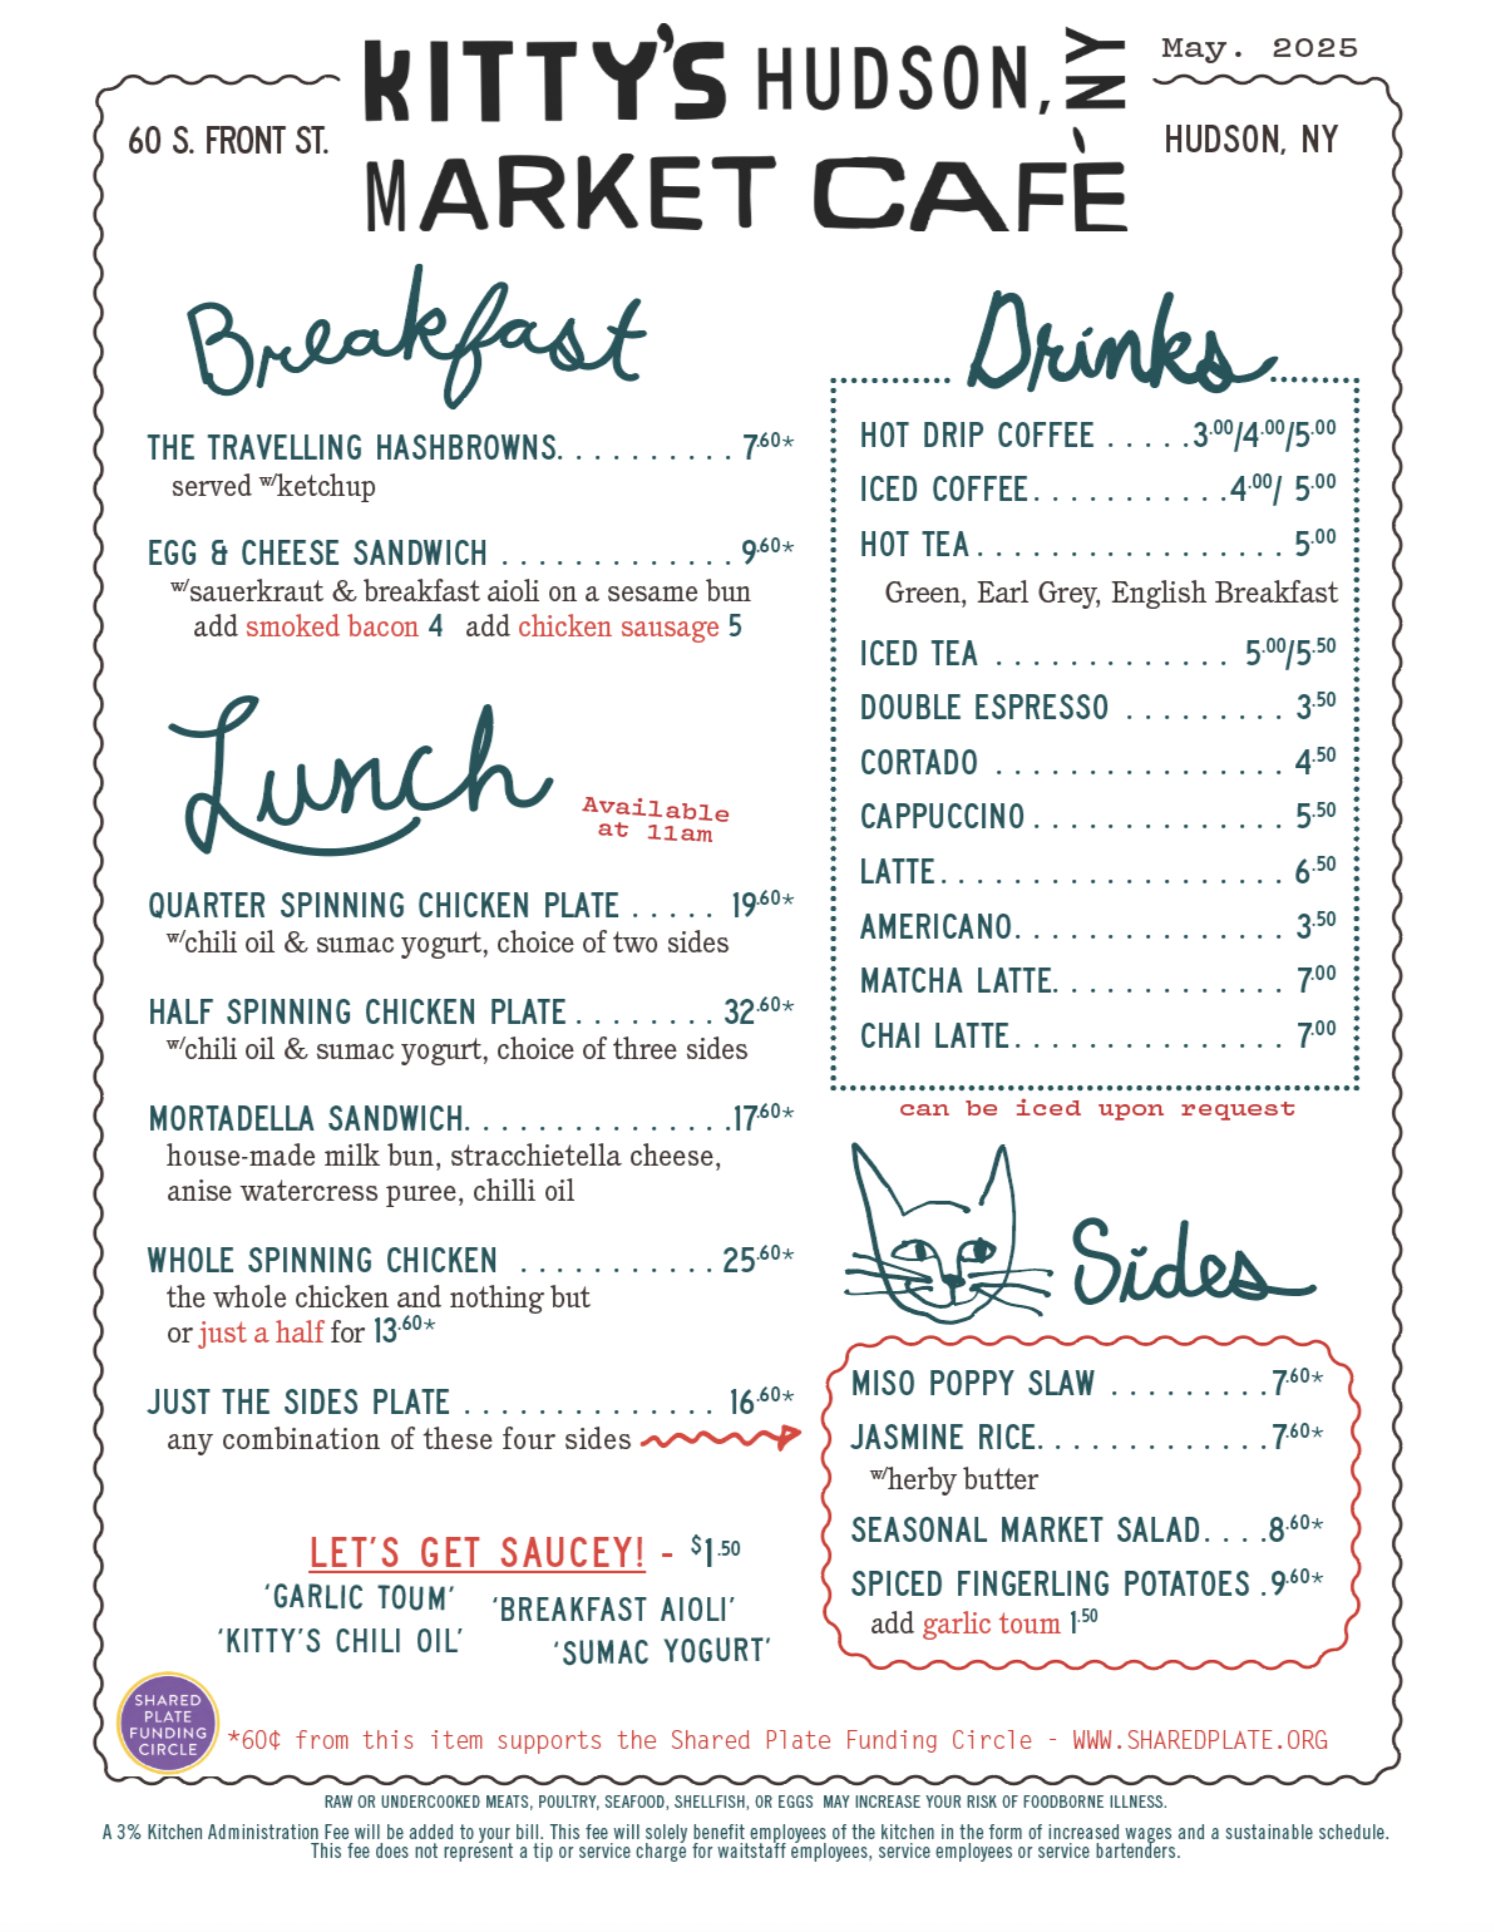 KITTY'S HUDSON, NY
May. 2025
60 S. FRONT ST.
HUDSON, NY
MARKET CAFÈ
Breakfast
THE TRAVELLING HASHBROWNS. . . . . . . . . . 7.60*
served w/ketchup
EGG & CHEESE SANDWICH . . . . . . . . . . . . . 9.60*
w/sauerkraut & breakfast aioli on a sesame bun
add smoked bacon 4 add chicken sausage 5
Lunch
Available
at 11am
QUARTER SPINNING CHICKEN PLATE . . . . . 19.60*
w/chili oil & sumac yogurt, choice of two sides
HALF SPINNING CHICKEN PLATE . . . . . . . . 32.60*
w/chili oil & sumac yogurt, choice of three sides
MORTADELLA SANDWICH. . . . . . . . . . . . . . .17.60*
house-made milk bun, stracchietella cheese,
anise watercress puree, chilli oil
WHOLE SPINNING CHICKEN . . . . . . . . . . . 25.60*
the whole chicken and nothing but
or just a half for 13.60*
JUST THE SIDES PLATE . . . . . . . . . . . . . . 16.60*
any combination of these four sides
LET'S GET SAUCEY! - $1.50
'GARLIC TOUM'
'BREAKFAST AIOLI'
'KITTY'S CHILI OIL'
'SUMAC YOGURT'
Drinks
HOT DRIP COFFEE . . . . .3.00/4.00/5.00
ICED COFFEE. . . . . . . . . . .4.00/ 5.00
HOT TEA . . . . . . . . . . . . . . . . . 5.00
Green, Earl Grey, English Breakfast
ICED TEA . . . . . . . . . . . . . 5.00/5.50
DOUBLE ESPRESSO . . . . . . . . . 3.50
CORTADO . . . . . . . . . . . . . . . . 4.50
CAPPUCCINO . . . . . . . . . . . . . . 5.50
LATTE. . . . . . . . . . . . . . . . . . . 6.50
AMERICANO. . . . . . . . . . . . . . . 3.50
MATCHA LATTE. . . . . . . . . . . . . 7.00
CHAI LATTE. . . . . . . . . . . . . . . 7.00
can be iced upon request
Sides
MISO POPPY SLAW . . . . . . . . .7.60*
JASMINE RICE. . . . . . . . . . . . .7.60*
w/herby butter
SEASONAL MARKET SALAD. . . .8.60*
SPICED FINGERLING POTATOES .9.60*
add garlic toum 1.50
SHARED
PLATE
FUNDING
CIRCLE
*60¢ from this item supports the Shared Plate Funding Circle - WWW.SHAREDPLATE.ORG
RAW OR UNDERCOOKED MEATS, POULTRY, SEAFOOD, SHELLFISH, OR EGGS MAY INCREASE YOUR RISK OF FOODBORNE ILLNESS.
A 3% Kitchen Administration Fee will be added to your bill. This fee will solely benefit employees of the kitchen in the form of increased wages and a sustainable schedule.
This fee does not represent a tip or service charge for waitstaff employees, service employees or service bartenders.